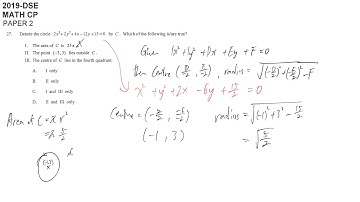 2019-DSE
MATH CP
PAPER 2
27. Denote the circle 2x²+2y²+4x−12y+15=0 by C. Which of the following is/are true?
I. The area of C is 25π. X
II. The point (−3, 3) lies outside C.
III. The centre of C lies in the fourth quadrant.
A. I only
B. II only
C. I and III only
D. II and III only
Given 1x²+1y²+Dx+Ey+F=0
x²+y²+2x−6y+15/2=0
radius = √((−1)²+3²−15/2)
(−1, 3)
= √(5/2)
Area of C = πr²
(-1,3)
x